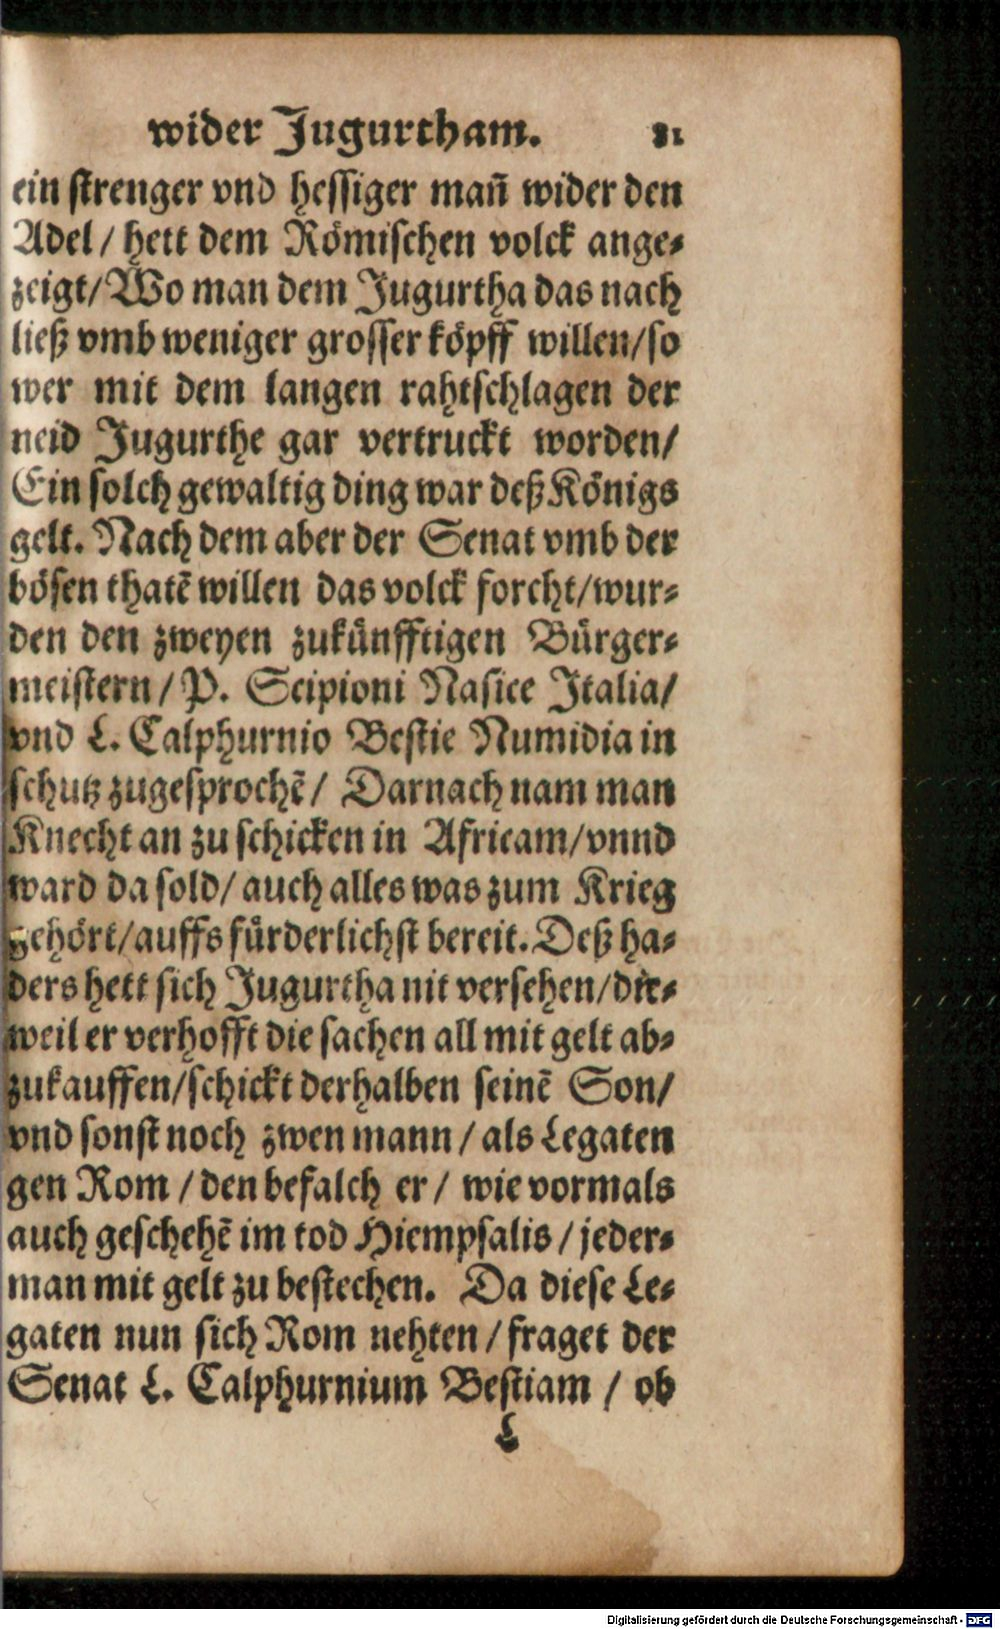 wider Jugurtham. 81
ein strenger vnd hessiger man̄ wider den
Adel / hett dem Römischen volck ange⸗
zeigt/ Wo man dem Jugurtha das nach
ließ vmb weniger grosser köpff willen/so
wer mit dem langen rahtschlagen der
neid Jugurthe gar vertruckt worden/
Ein solch gewaltig ding war deß Königs
gelt. Nach dem aber der Senat vmb der
bösen thatē willen das volck forcht/wur⸗
den den zweyen zukünfftigen Bürger⸗
meistern / P. Scipioni Nasice Italia/
vnd L. Calphurnio Bestie Numidia in
schutz zugesprochē / Darnach nam man
Knecht an zu schicken in Africam/vnnd
ward da sold/ auch alles was zum Krieg
gehört/auffs fürderlichst bereit. Deß ha⸗
ders hett sich Jugurtha nit versehen/die⸗
weil er verhofft die sachen all mit gelt ab⸗
zukauffen/schickt derhalben seinē Son/
vnd sonst noch zwen mann / als Legaten
gen Rom / den befalch er / wie vormals
auch geschehē im tod Hiempsalis / jeder⸗
man mit gelt zu bestechen. Da diese Le⸗
gaten nun sich Rom nehten / fraget der
Senat L. Calphurnium Bestiam / ob
L
Digitalisierung gefördert durch die Deutsche Forschungsgemeinschaft - DFG